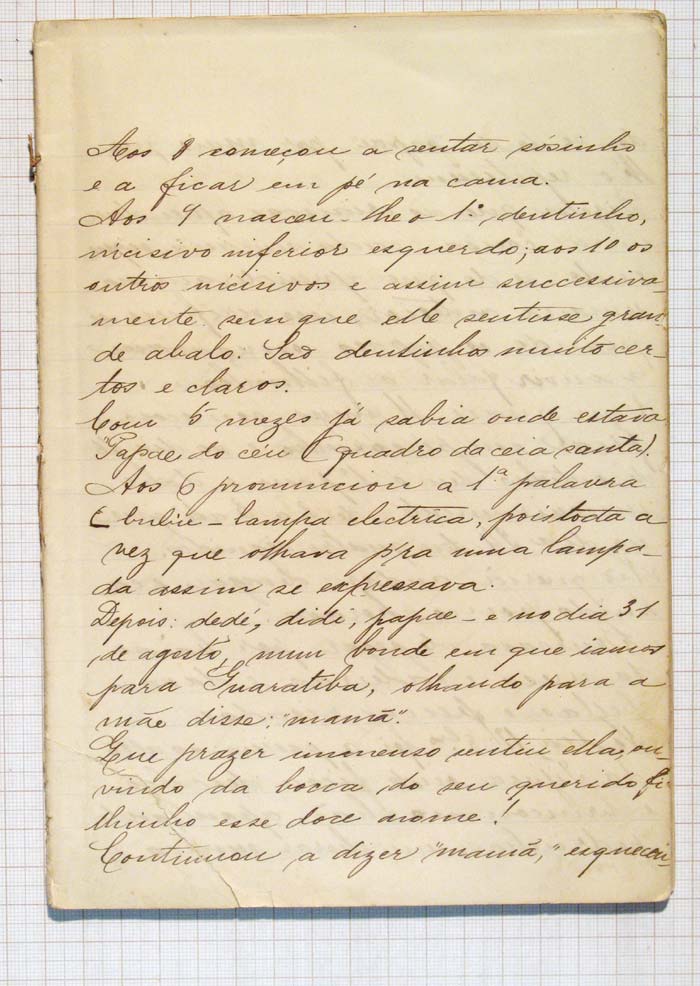 Aos 8 começou a sentar sósinho
e a ficar em pé na cama.
Aos 9 nasceu-lhe o 1º dentinho,
incisivo inferior esquerdo; aos 10 os
outros incisivos e assim successiva-
mente sem que elle sentisse gran-
de abalo. São dentinhos muito cer-
tos e claros.
Com 5 mezes já sabia onde estava
"Papae do céu (quadro da ceia santa).
Aos 6 pronunciou a 1ª palavra
bubú - lampa electrica, pois toda a
vez que olhava p'ra uma lampa-
da assim se expressava.
Depois: dedé, didi, papae - e no dia 31
de agosto, num bonde em que iamos
para Guaratiba, olhando para a
mãe disse: "mamã".
Que prazer immenso sentiu ella, ou-
vindo da bocca do seu querido fi-
lhinho esse doce nome!
Continuou a dizer "mamã," esquecen-